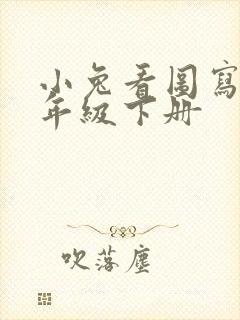 小兔看图寫
年级下册
吹落塵